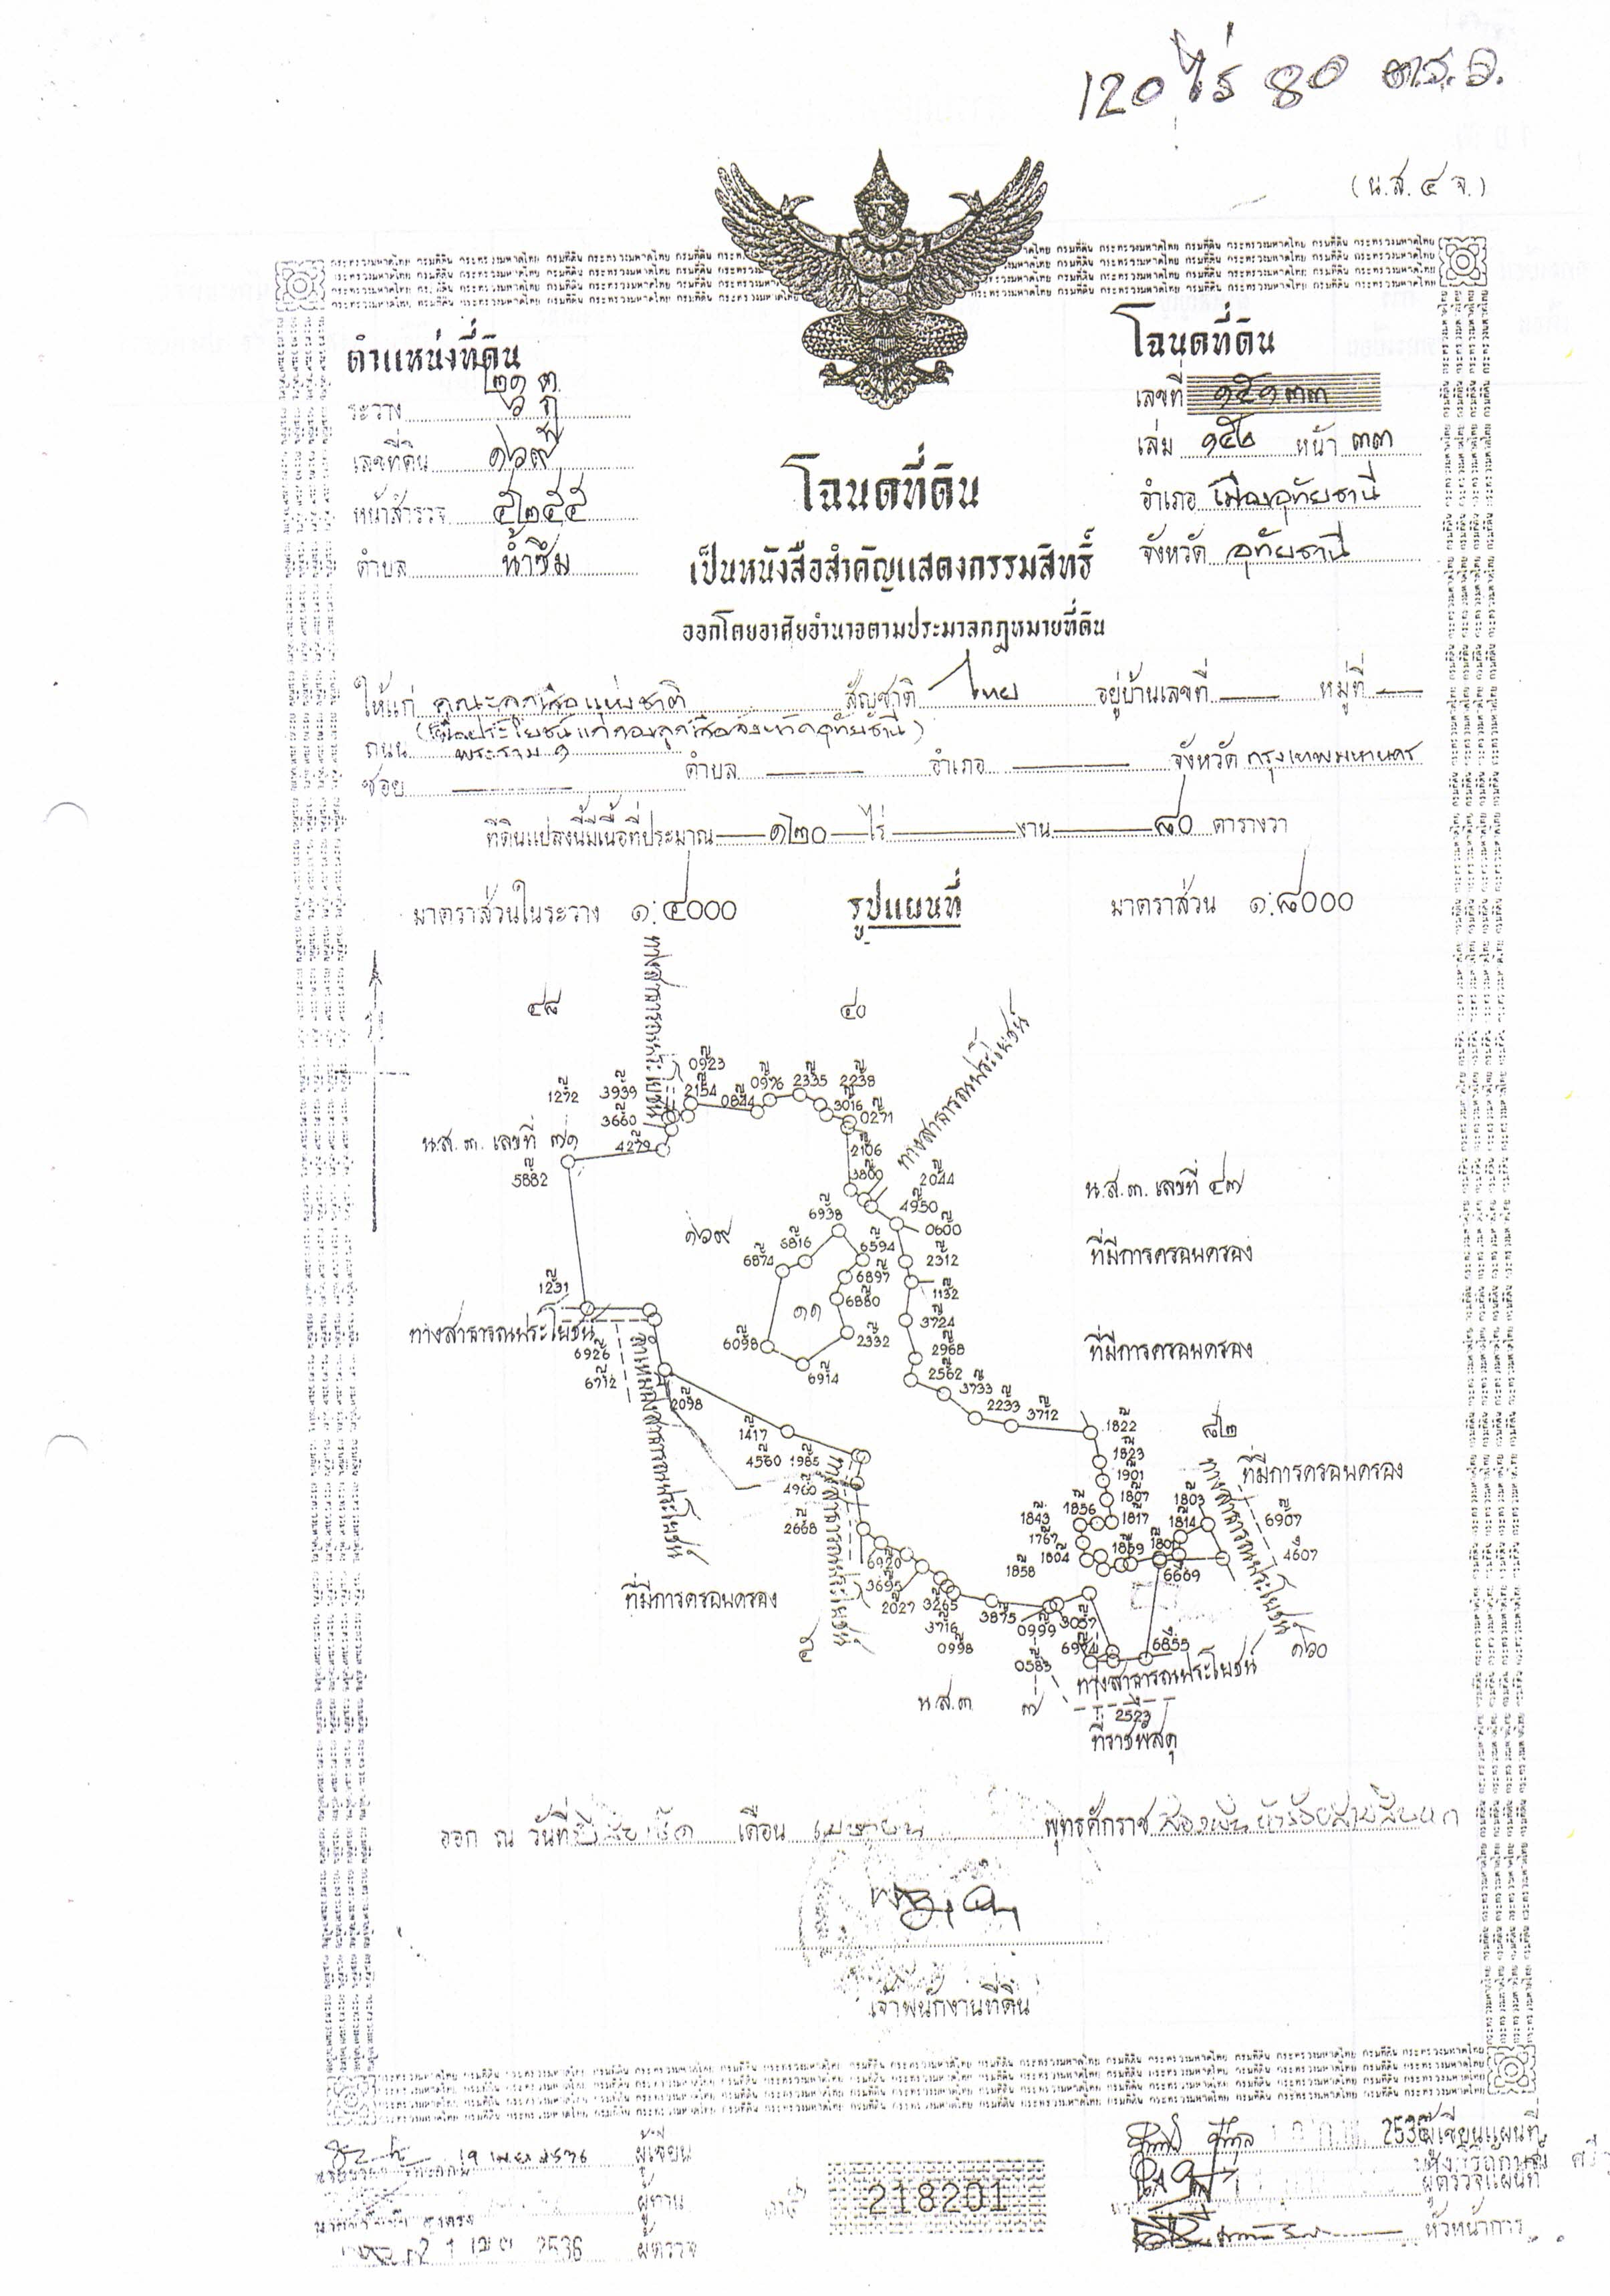 120 ไร่ 80 ต.ร.ว.
(น.ส. ๔ จ.)
ตำแหน่งที่ดิน
ระวาง
เลขที่ดิน ๑๖๙
หน้าสำรวจ ๕๒๕๕
ตำบล น้ำซึม
โฉนดที่ดิน
เลขที่ ๑๕๑๓๓
เล่ม ๑๕๒ หน้า ๓๓
อำเภอ เมืองอุทัยธานี
จังหวัด อุทัยธานี
โฉนดที่ดิน
เป็นหนังสือสำคัญแสดงกรรมสิทธิ์
ออกโดยอาศัยอำนาจตามประมวลกฎหมายที่ดิน
ให้แก่ คณะลูกเสือแห่งชาติ สัญชาติ ไทย อยู่บ้านเลขที่ — หมู่ที่ —
(เพื่อประโยชน์แก่กองลูกเสือจังหวัดอุทัยธานี)
ถนน พระราม ๑
ซอย — ตำบล — อำเภอ — จังหวัด กรุงเทพมหานคร
ที่ดินแปลงนี้มีเนื้อที่ประมาณ ๑๒๐ ไร่ — งาน — ๘๐ ตารางวา
มาตราส่วนในระวาง ๑:๔๐๐๐ รูปแผนที่ มาตราส่วน ๑:๘๐๐๐
ทางสาธารณประโยชน์
๔๘ ๔๐
ทางสาธารณประโยชน์
0923
1272 3939 2154 0844 0976 2335 2238
3660 3016 0271
น.ส.๓. เลขที่ ๗๑ 4279 2106
5882 3800 2044
น.ส.๓. เลขที่ ๔๗
6938 4950
๑๖๙ 6816 6594 0600
6874 2312
ที่มีการครอบครอง
1231 6897 1132
๑๑ 6880 3724
ทางสาธารณประโยชน์ 6098 2332 2968
ที่มีการครอบครอง
6926 6914 2562
6712 2098 3733
2233 3712
ลำเหมืองสาธารณประโยชน์
1417 1822 ๘๒
4560 1985 1823
ที่มีการครอบครอง
4960 1901
1807 1803
2668 1843 1856 1817 1814 6907
1767 4607
6920 1804 1869
3695 1858 6669
ทางสาธารณประโยชน์
ทางสาธารณประโยชน์
ที่มีการครอบครอง
2027 3265 3875
3716 0999 3057
0998 6855 ๑๖๐
0583
ทางสาธารณประโยชน์
น.ส.๓ ๗
2523
ที่ราชพัสดุ
ออก ณ วันที่ยี่สิบเอ็ด เดือน เมษายน พุทธศักราช สองพันห้าร้อยสามสิบหก
เจ้าพนักงานที่ดิน
19 เม.ย. 2536 ผู้เขียน
ผู้ทาน
21 เม.ย. 2536 ผู้ตรวจ
218201
2536 ผู้เขียนแผนที่
ผู้ตรวจแผนที่
หัวหน้าการ